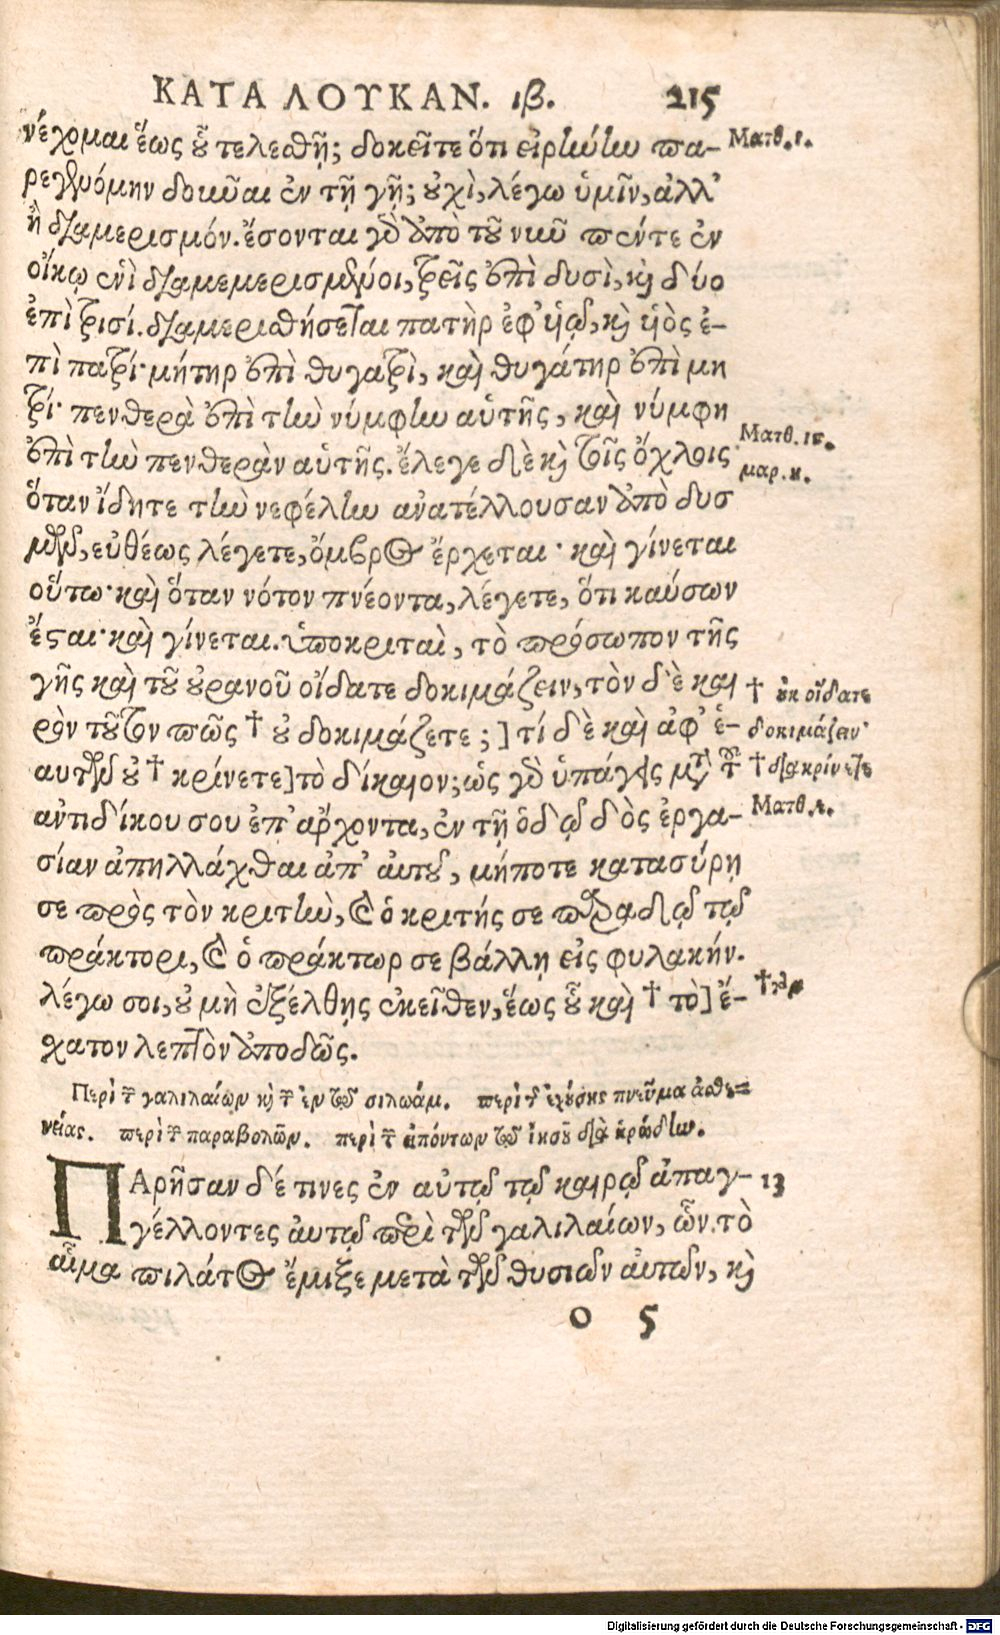 ΚΑΤΑ ΛΟΥΚΑΝ. ιβ. 215
νέχομαι ἕως οὗ τελεσθῇ; δοκεῖτε ὅτι εἰρήνην πα- Ματθ.ι.
ρεγενόμην δοῦναι ἐν τῇ γῇ; οὐχὶ, λέγω ὑμῖν, ἀλλ'
ἢ διαμερισμόν. ἔσονται γὰρ ἀπὸ τοῦ νῦν πέντε ἐν
οἴκῳ ἑνὶ διαμεμερισμένοι, τρεῖς ἐπὶ δυσὶ, καὶ δύο
ἐπὶ τρισί. διαμερισθήσεται πατὴρ ἐφ' υἱῷ, καὶ υἱὸς ἐ-
πὶ πατρί· μήτηρ ἐπὶ θυγατρὶ, καὶ θυγάτηρ ἐπὶ μη
τρί· πενθερὰ ἐπὶ τὴν νύμφην αὑτῆς, καὶ νύμφη
ἐπὶ τὴν πενθερὰν αὑτῆς. ἔλεγε δὲ καὶ τοῖς ὄχλοις· Ματθ. ιϛ.
μαρ. η.
ὅταν ἴδητε τὴν νεφέλην ἀνατέλλουσαν ἀπὸ δυσ
μῶν, εὐθέως λέγετε, ὄμβρος ἔρχεται· καὶ γίνεται
οὕτω· καὶ ὅταν νότον πνέοντα, λέγετε, ὅτι καύσων
ἔσται· καὶ γίνεται. ὑποκριταὶ, τὸ πρόσωπον τῆς
γῆς καὶ τοῦ οὐρανοῦ οἴδατε δοκιμάζειν, τὸν δὲ και † οὐκ οἴδατε
ρὸν τοῦτον πῶς † οὐ δοκιμάζετε; ] τί δὲ καὶ ἀφ' ἑ- δοκιμάζειν·
αυτῶν οὐ † κρίνετε] τὸ δίκαιον; ὡς γὰρ ὑπάγεις μετὰ τοῦ † διακρίνετε
ἀντιδίκου σου ἐπ' ἄρχοντα, ἐν τῇ ὁδῷ δὸς ἐργα- Ματθ.ε.
σίαν ἀπηλλάχθαι ἀπ' αὐτοῦ, μήποτε κατασύρῃ
σε πρὸς τὸν κριτὴν, καὶ ὁ κριτής σε παραδῷ τῷ
πράκτορι, καὶ ὁ πράκτωρ σε βάλλῃ εἰς φυλακήν.
λέγω σοι, οὐ μὴ ἐξέλθῃς ἐκεῖθεν, ἕως οὗ καὶ † τὸ] ἔ-
σχατον λεπτὸν ἀποδῷς.
Περὶ τῶν γαλιλαίων καὶ τῶν ἐν τῷ σιλωάμ. περὶ τῆς ἐχούσης πνεῦμα ἀσθε=
νείας. περὶ τῶν παραβολῶν. περὶ τῶν εἰπόντων τῷ ἰησοῦ διὰ ἡρώδην.
ΠΑρῆσαν δέ τινες ἐν αὐτῷ τῷ καιρῷ ἀπαγ- 13
γέλλοντες αὐτῷ περὶ τῶν γαλιλαίων, ὧν τὸ
αἷμα πιλάτος ἔμιξε μετὰ τῶν θυσιῶν αὐτῶν, καὶ
O 5
Digitalisierung gefördert durch die Deutsche Forschungsgemeinschaft - DFG